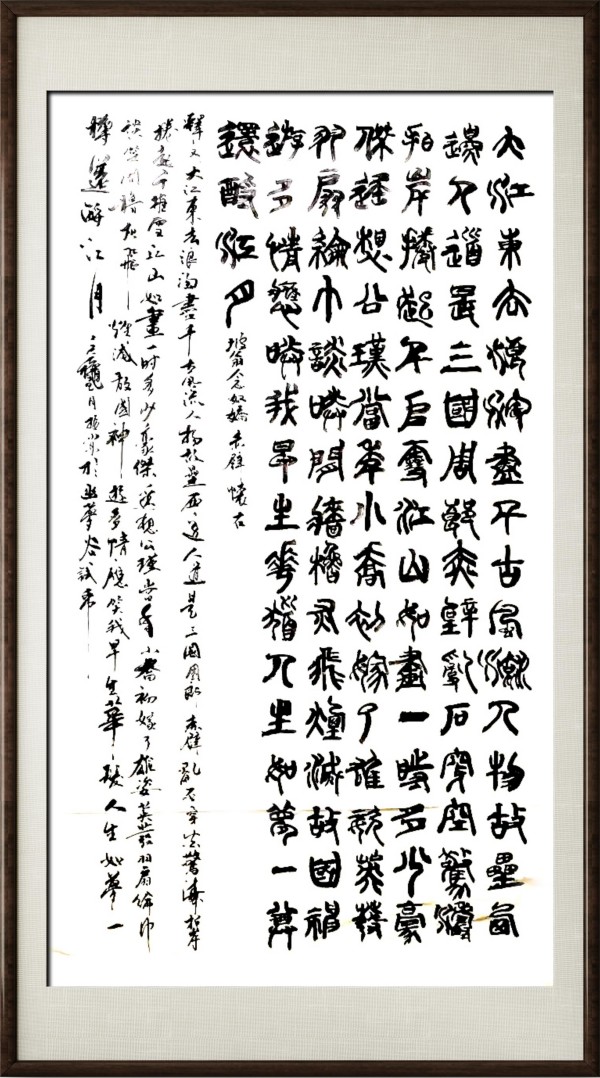 大江東去浪淘盡千古風流人物故壘西
邊人道是三國周郎赤壁亂石穿空驚濤
拍岸捲起千堆雪江山如畫一時多少豪
傑遙想公瑾當年小喬初嫁了雄姿英發
羽扇綸巾談笑間檣櫓灰飛煙滅故國神
遊多情應笑我早生華髮人生如夢一尊
還酹江月
坡翁念奴嬌赤壁懷古
釋文大江東去浪淘盡千古風流人物故壘西邊人道是三國周郎赤壁亂石穿空驚濤拍岸
捲起千堆雪江山如畫一時多少豪傑遙想公瑾當年小喬初嫁了雄姿英發羽扇綸巾
談笑間檣灰飛煙滅故國神遊多情應笑我早生華髮人生如夢一
尊還酹江月